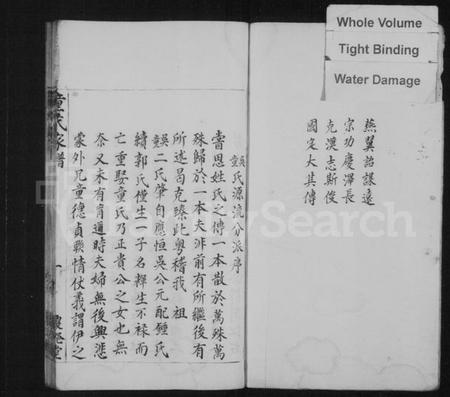 Whole Volume
Tight Binding
Water Damage
燕翼詒謀遠
宗功慶澤長
克漢志斯俊
國定大其傳
童吳氏源流分派序
嘗思姓氏之傳一本散於萬殊萬
殊歸於一本夫非前有所繼後有
所述曷克臻此粵稽我 祖
吳二氏肇自應恒吳公元配鍾氏
續郭氏僅生一子名釋生不祿而
亡重娶童氏乃正貴公之女也無
奈又未有育適時夫婦無後興悲
蒙外兄童德貞聯情仗義謂伊之
童氏家譜
一
FamilySearch